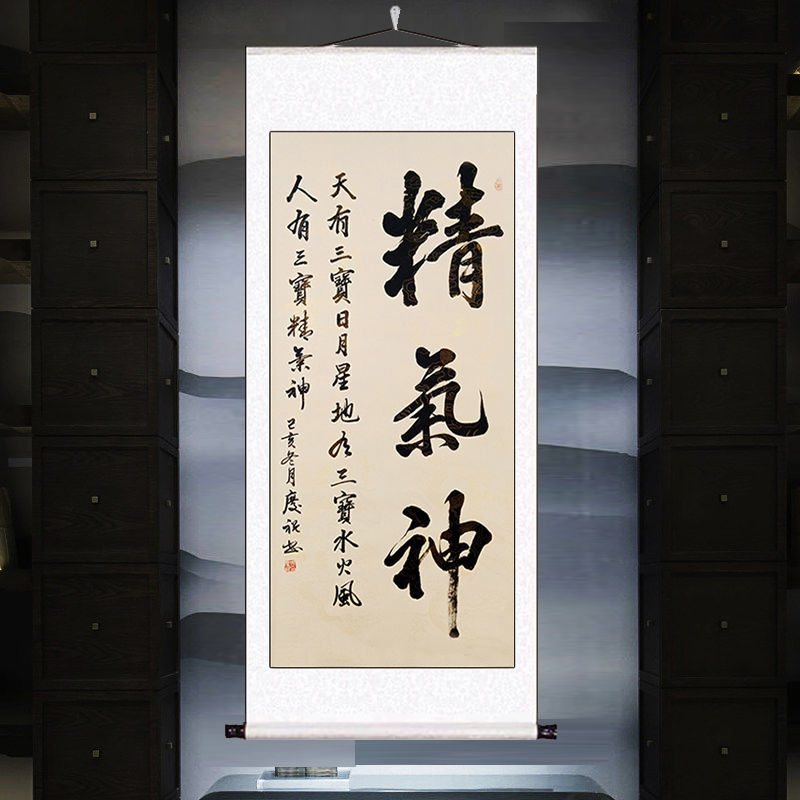 精氣神
天有三寶日月星地有三寶水火風
人有三寶精氣神
己亥冬月慶